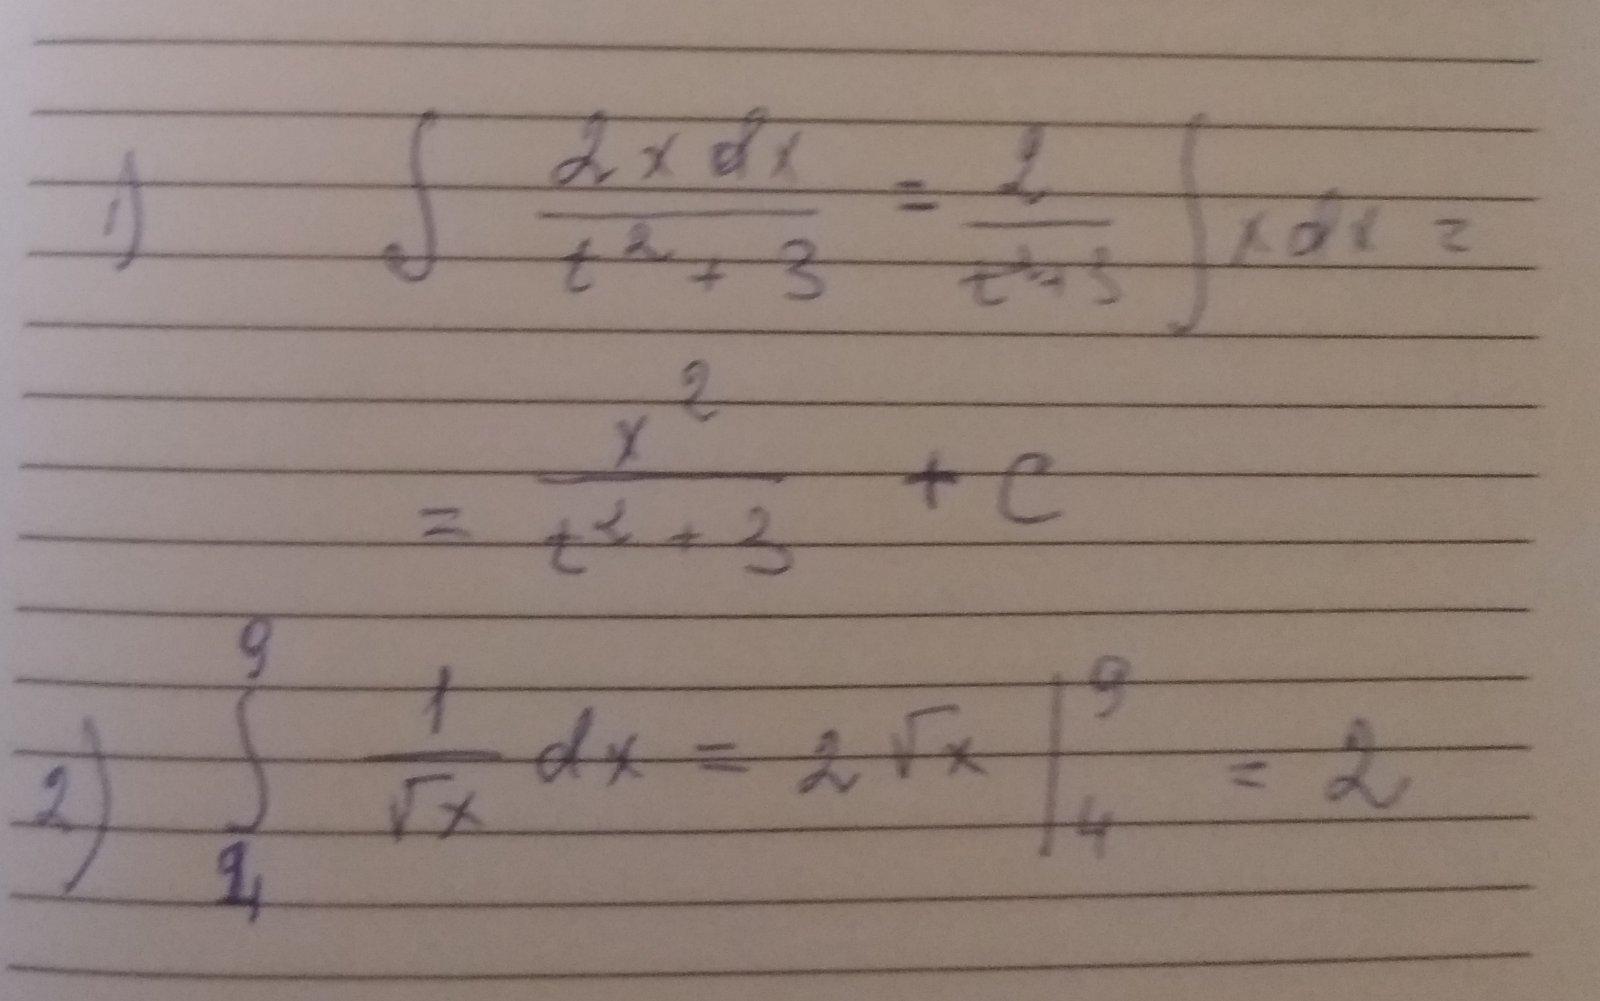 1) ∫ 2x dx / (t² + 3) = 2 / (t² + 3) ∫ x dx =
= x² / (t² + 3) + C
2) ∫₄⁹ 1/√x dx = 2√x |₄⁹ = 2